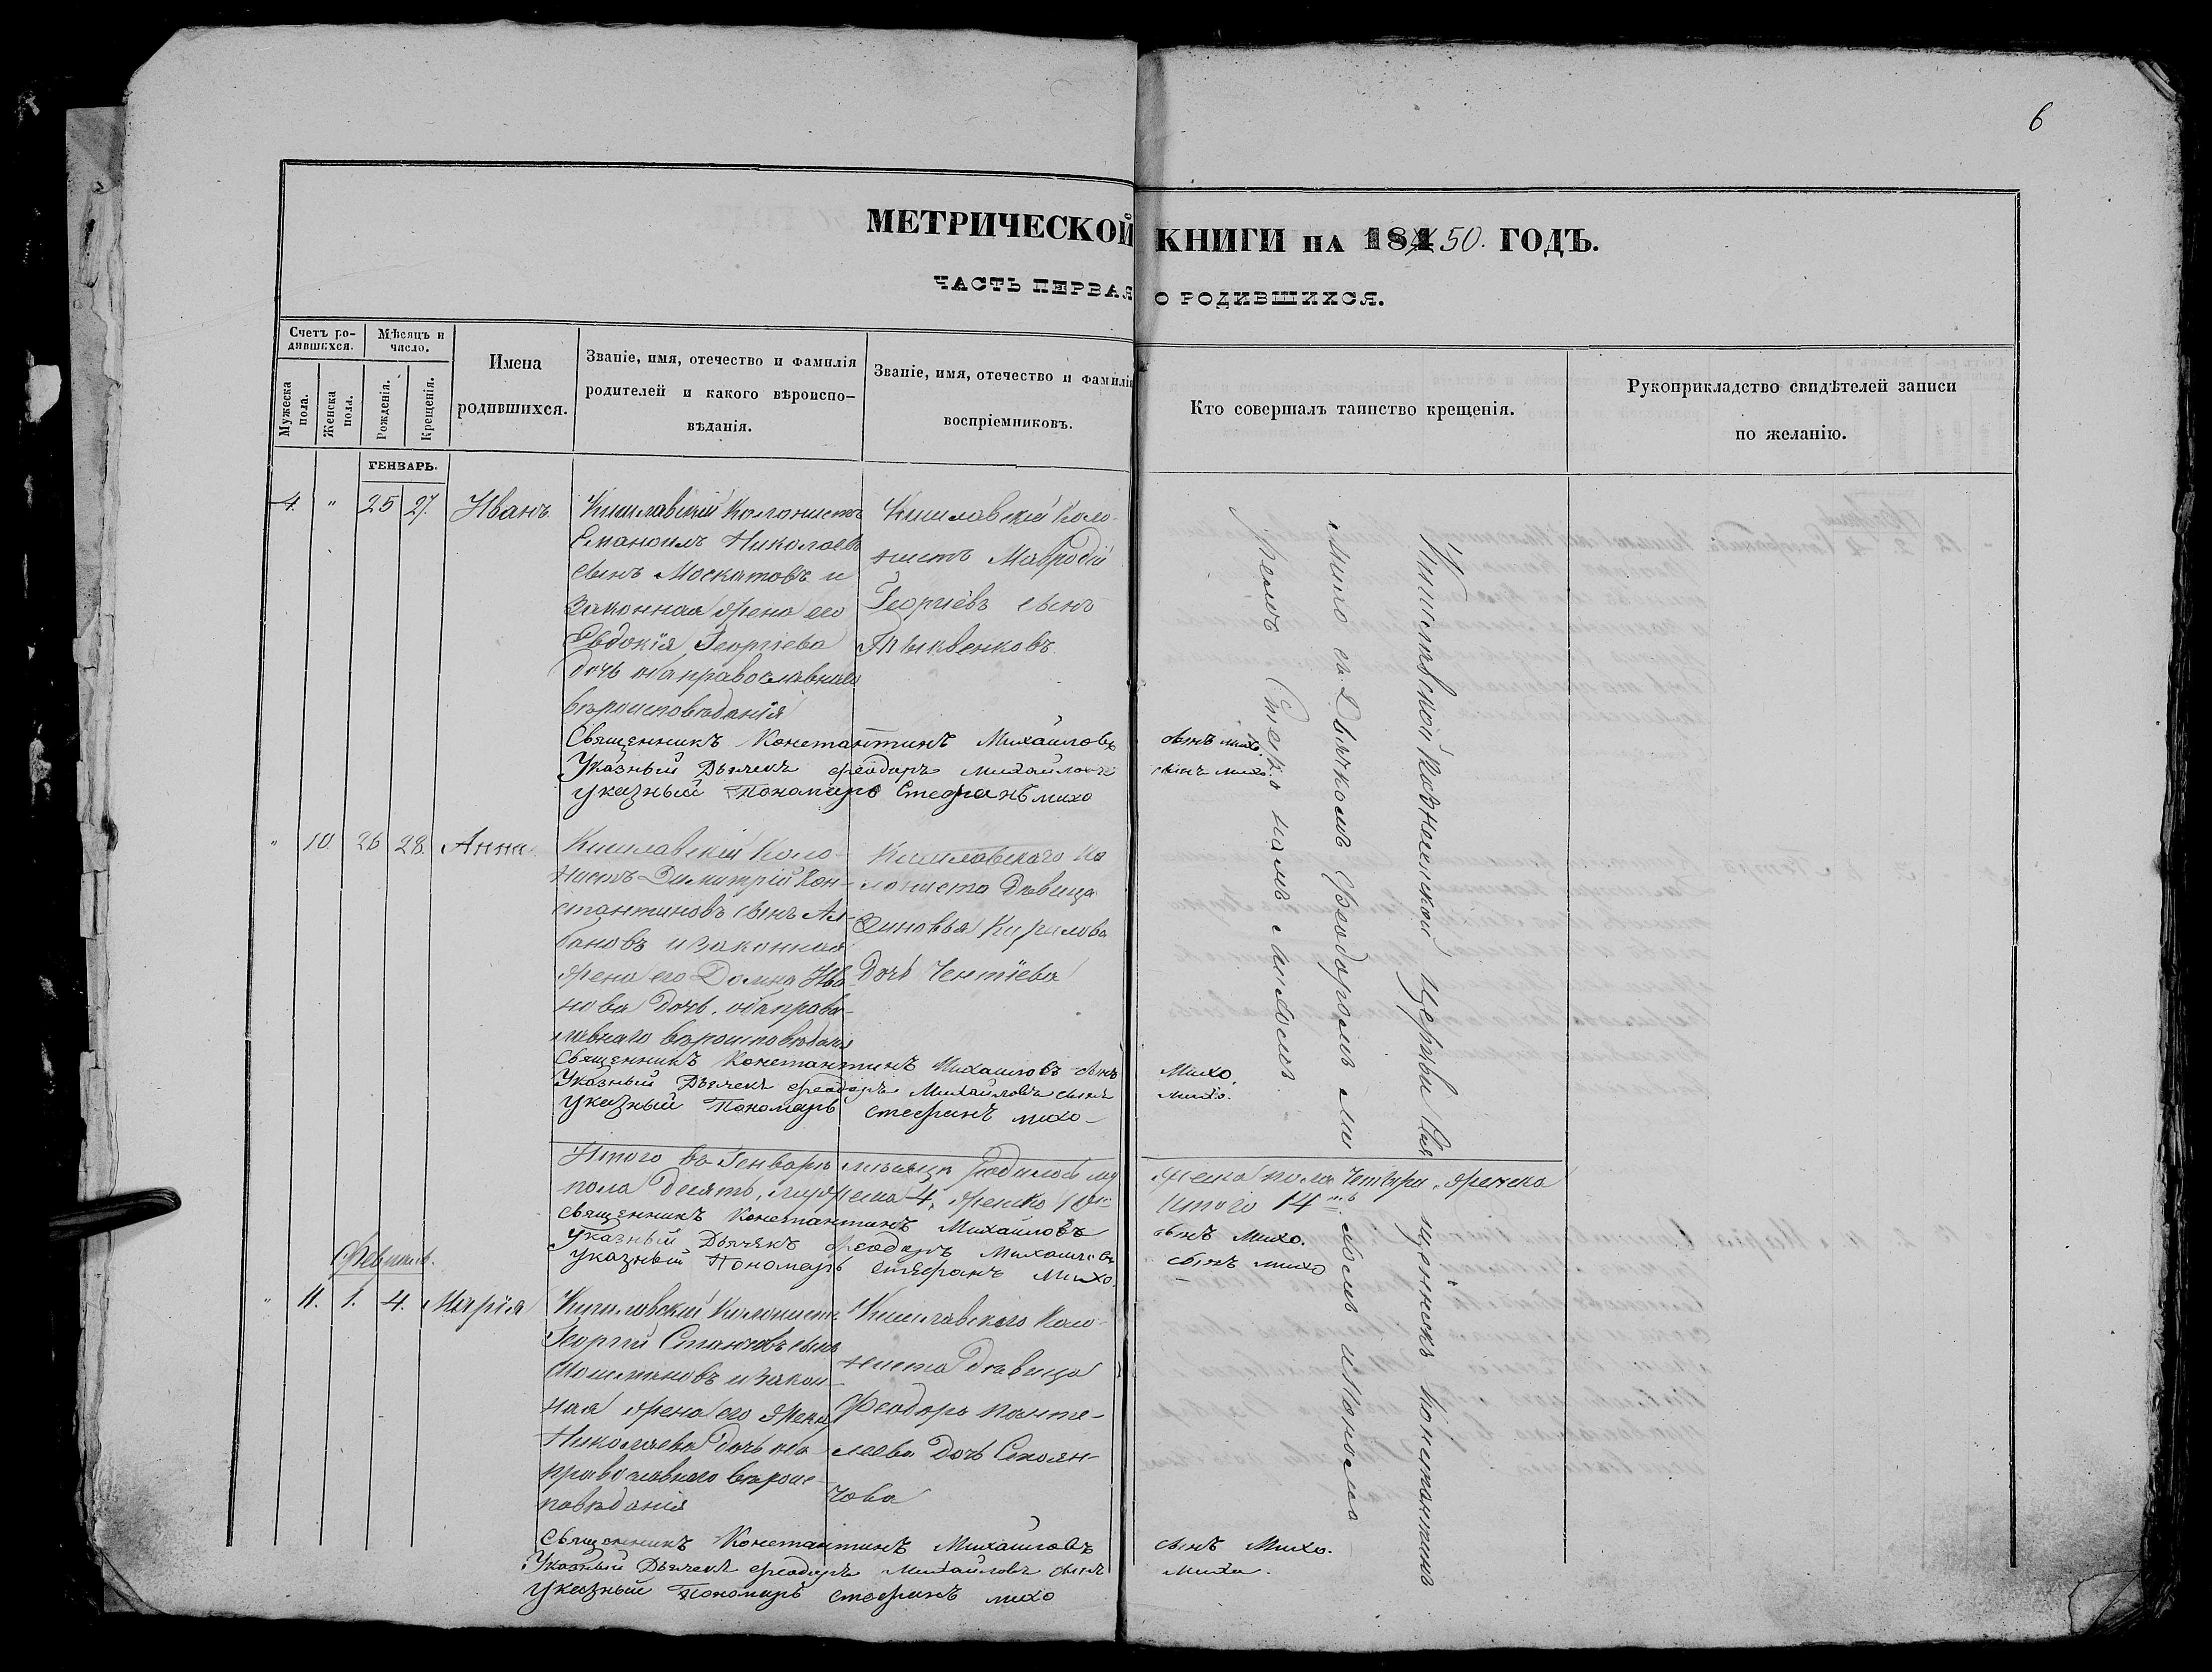 6
МЕТРИЧЕСКОЙ КНИГИ на 184 50. ГОДЪ.
ЧАСТЬ ПЕРВАЯ О РОДИВШИХСЯ.
Счетъ родившихся.
Мужеска пола.
Женска пола.
Мѣсяцъ и число.
Рожденія.
Крещенія.
Имена родившихся.
Званіе, имя, отечество и фамилія
родителей и какого вѣроиспо-
вѣданія.
Званіе, имя, отечество и фамилія
воспріемниковъ.
Кто совершалъ таинство крещенія.
Рукоприкладство свидѣтелей записи
по желанію.
ГЕНВАРЬ.
4. " 25 27. Иванъ
Кишлавскій Колонистъ
Емануилъ Николаевъ
сынъ Москатовъ и
законная жена его
Евдокія Георгіева
дочь оба православнаго
вѣроисповѣданія
Кишлавскій Коло-
нистъ Мавродій
Георгіевъ сынъ
Тыквенковъ
Священникъ Константинъ Михайловъ сынъ Михо.
Указный Дьячекъ Феодоръ Михайловъ сынъ Михо.
Указный Пономарь Стефанъ Михо
" 10. 26 28. Анна
Кишлавскій Коло-
нистъ Димитрій Кон-
стантиновъ сынъ Ал-
бановъ и законная
жена его Домна Ива-
нова дочь. оба право-
славнаго вѣроисповѣданія
Кишлавскаго Ко
лониста Дѣвица
Зиновья Кирилова
дочь Чентіева
Священникъ Константинъ Михайловъ сынъ Михо.
Указный Дьячекъ Феодоръ Михайловъ сынъ Михо.
Указный Пономарь Стефанъ Михо
Итого въ Генварѣ мѣсяцѣ родилось му жеска пола четыри, женска
пола десять, мужеска 4, женска 10 Итого 14
Священникъ Константинъ Михайловъ сынъ Михо.
Указный Дьячекъ Феодоръ Михайловъ сынъ Михо
Указный Пономарь Стефанъ Михо.
Февраль.
" 11. 1. 4. Марія
Кишлавскій Колонистъ
Георгій Станчовъ сынъ
и закон-
ная жена его
Николаева дочь оба
православнаго вѣроис-
повѣданія
Кишлавскаго Коло-
ниста Дѣвица
Феодора Панте-
леева дочь Стоян-
чова
Священникъ Константинъ Михайловъ сынъ Михо.
Указный Дьячекъ Феодоръ Михайловъ сынъ Михо.
Указный Пономарь Стефанъ Михо
Кишлавской Церкви Священникъ Константинъ
Михо съ Дьячкомъ Феодоромъ Михомъ и Понома
ремъ Стефаномъ Михомъ